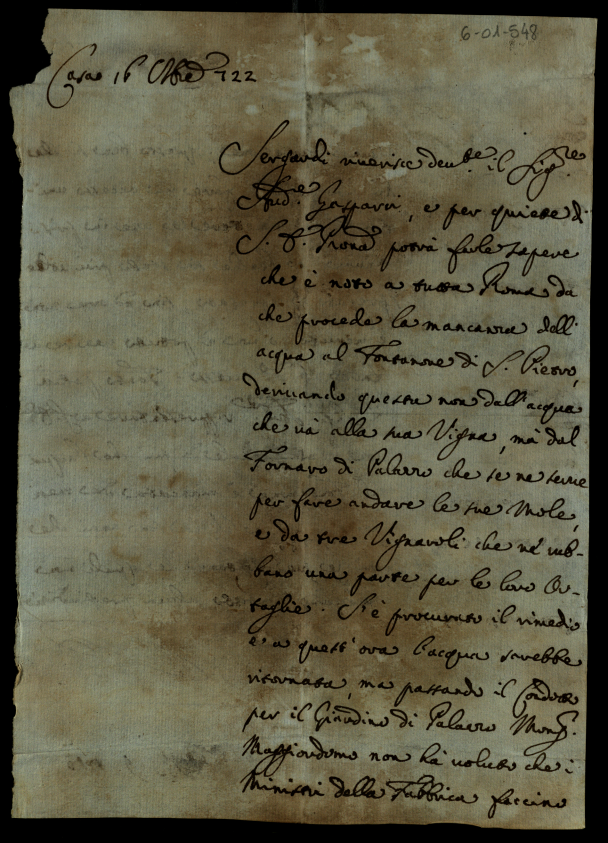 6-01-548
Casa 16 Obre 722
Sergardi riverisce devte. il Sigre.
Audre. Gasparri, e per quiete di
S. E. Prona potrà farle sapere
che è noto a tutta Roma da
che procede la mancanza dell'
acqua al Fontanone di S. Pietro,
derivando questa non dall'acqua
che và alla sua Vigna, mà dal
Fornaro di Palazzo che se ne serve
per fare andare le sue Mole,
e da tre Vignaroli che ne rub-
bano una parte per le loro Or-
taglie. S'è procurato il rimedio
e a quest'ora l'acqua sarebbe
ritornata, ma passando il Condotto
per il Giardino di Palazzo Mong.
Maggiordomo non hà voluto che i
Ministri della Fabbrica faccino